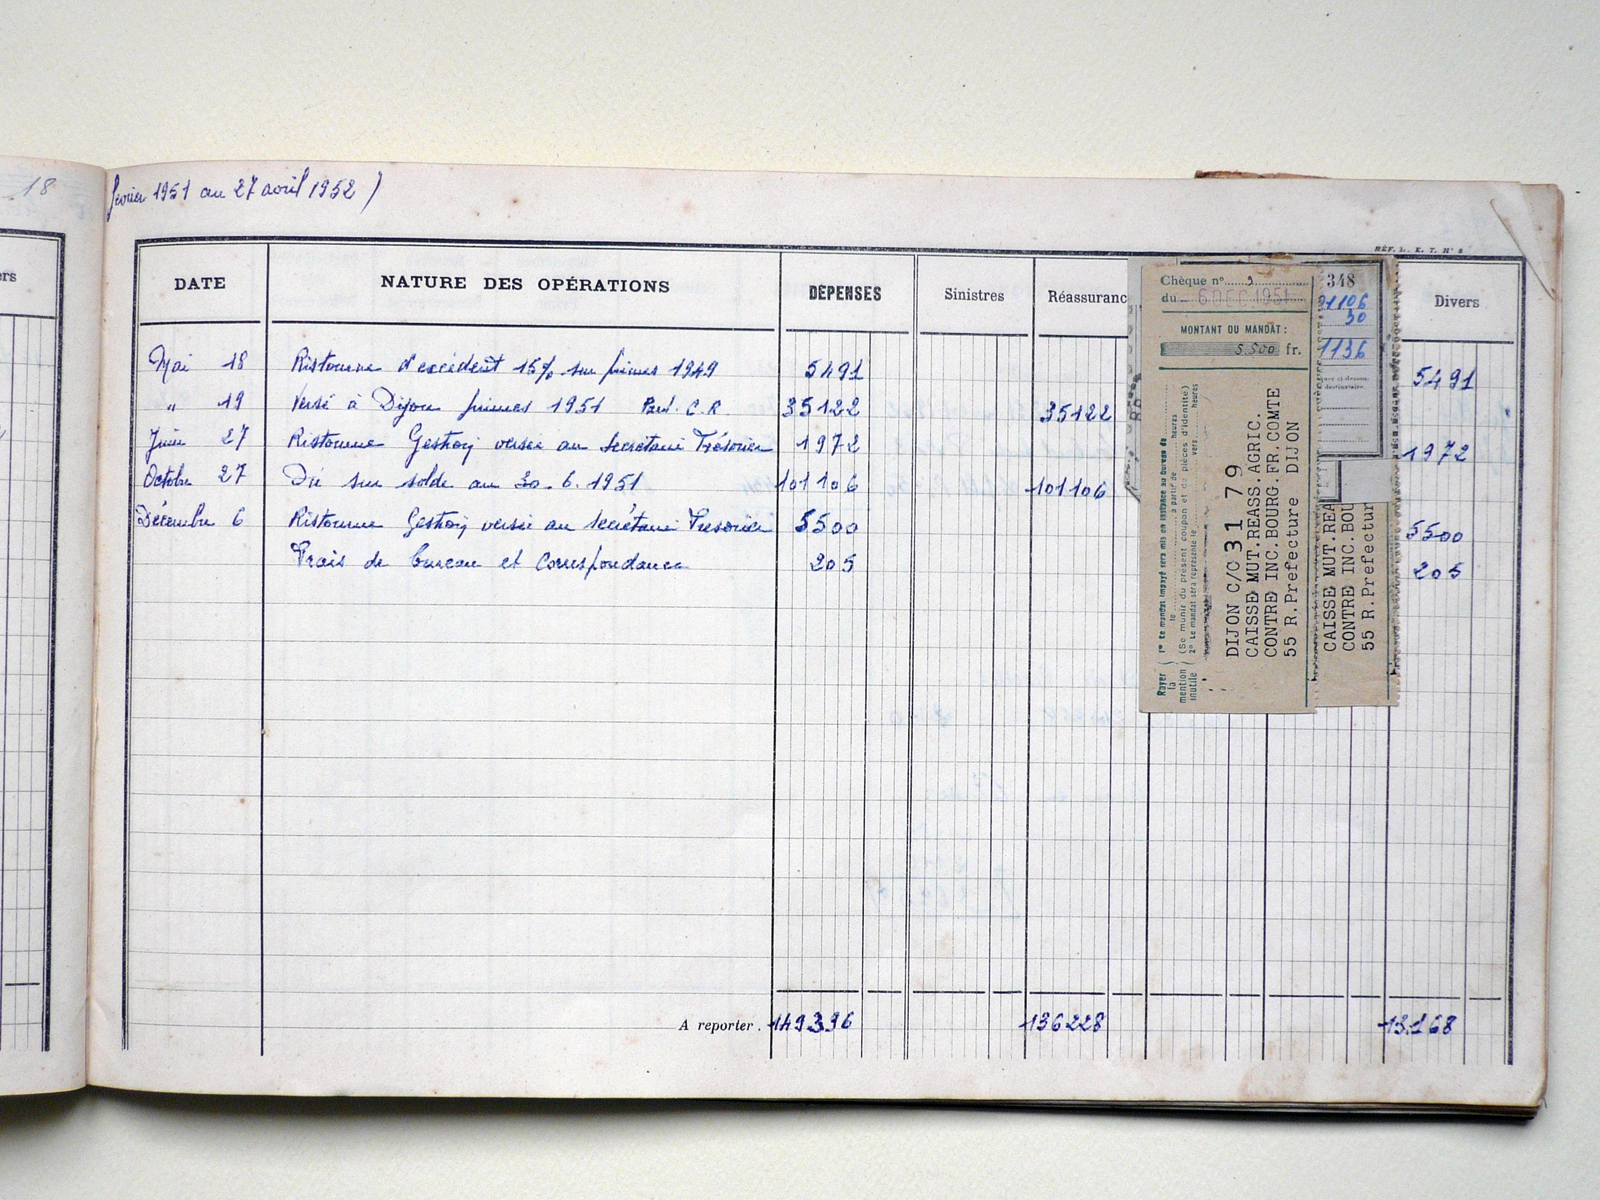 18
février 1951 au 27 avril 1952 )
RÉF. L. E. T. N° 8
ers
DATE NATURE DES OPÉRATIONS DÉPENSES Sinistres Réassuranc Divers
Mai 18 Ristourne d'excédent 15% sur primes 1949 5491 5491
" 19 Versé à Dijon primes 1951 C.R. 35122 35122
Juin 27 Ristourne Gestion versée au Secrétaire Trésorier 1972 1972
Octobre 27 Dû sur solde au 30.6.1951 101106 101106
Décembre 6 Ristourne Gestion versée au Secrétaire Trésorier 5500 5500
Frais de bureau et correspondance 205 205
A reporter. 149396 136228 13.168
Chèque n°
du 6 DEC 1951
MONTANT DU MANDAT :
5.500 fr.
Rayer la mention inutile
1° Le mandat impayé sera mis en instance au bureau de
le à partir de heures
(Se munir du présent coupon et de pièces d'identité)
2° Le mandat sera représenté le vers heures
DIJON C/C 31 79
CAISSE MUT.REASS.AGRIC.
CONTRE INC.BOURG.FR.COMTE
55 R.Prefecture DIJON
348
30
1136
CAISSE MUT.REA
CONTRE INC.BOU
55 R.Prefectur